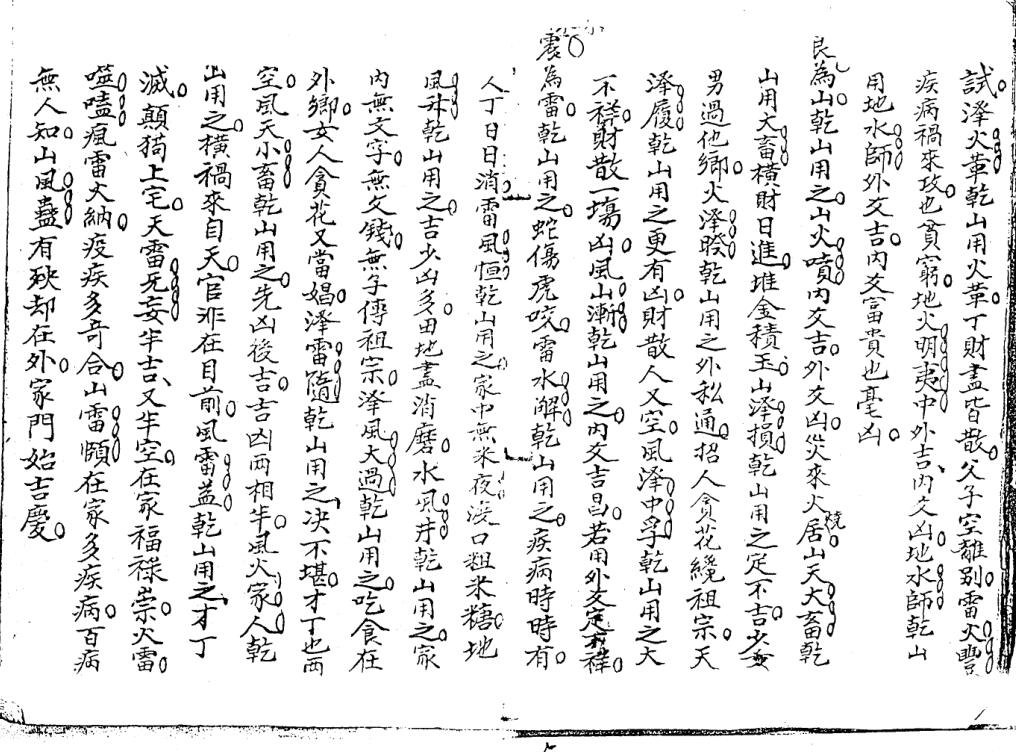 試澤火革乾山用火革丁財盡皆散父子空離别雷火豐
疾病禍來攻也貧窮地火明夷中外吉内爻凶地水師乾山
用地水師外爻吉内爻富貴也毫凶
艮為山乾山用之山火噴内爻吉外爻凶災來火居山天大畜乾
山用大畜横財日進堆金積玉山澤損乾山用之定不吉少女
男過他鄉火澤睽乾山用之外私通招人貪花纔祖宗天
澤履乾山用之更有凶財散人又空風澤中孚乾山用之大
不祥財散一塲凶風山漸乾山用之内爻吉昌若用外爻定不祥
震為雷乾山用之蛇傷虎咬雷水解乾山用之疾病時時有
人丁日日消雷風恒乾山用之家中無米夜浇口粗米糖地
風升乾山用之吉少凶多田地盡消磨水風井乾山用之家
内無文字無文錢無子傳祖宗澤風大過乾山用之吃食在
外鄉女人貪花又當娼澤雷隨乾山用之决不堪才丁也两
空風天小畜乾山用之先凶後吉吉凶两相半風火家人乾
山用之横禍來自天官非在目前風雷益乾山用之才丁
滅顛猗上宅天雷无妄半吉又半空在家福祿崇火雷
噬嗑瘋雷火納疫疾多奇合山雷頤在家多疾病百病
無人知山風蠱有殃却在外家門始吉慶